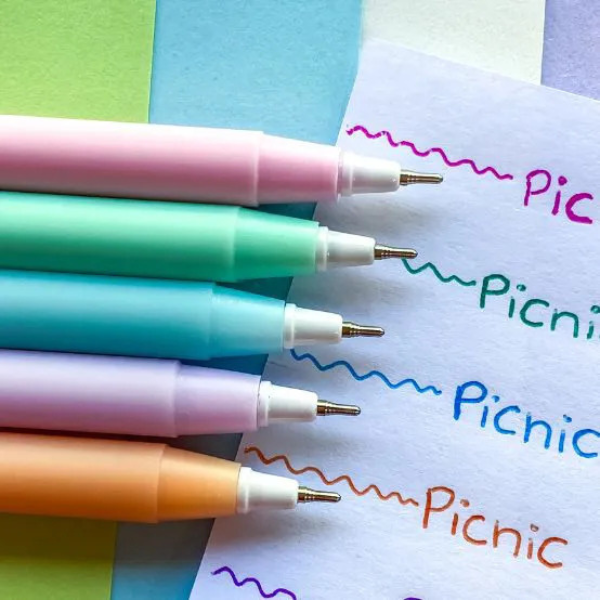 Pic
Picni
Picnic
Picnic